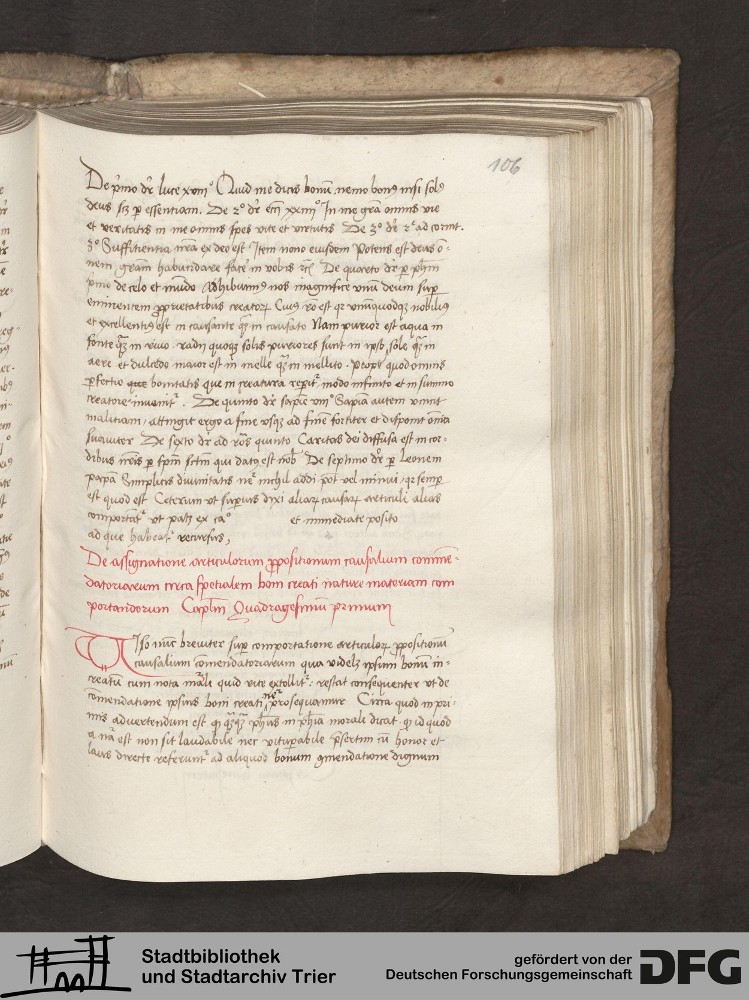 106
De pͥmo dr̄ luce xviijº Quid me dicis bonū nemo bonꝰ nisi solꝰ
deus scꝫ ꝑ essentiam. De 2º dr̄ xxiiijº In me grā omnis vie
et veritatis in me omnis spes vite et virtutis De 3º dr̄ 2ª ad corint.
3º Sufficientia nr̄a ex deo est Item nono eiusdem Potens est deus o-
nem gram̄ habundare facͤ in vobis De quarto dr̄ ꝑ pħm
pͥmo de celo et mūdo Adhibuimꝰ nos magnifice vnū deum suꝑ
eminentem ꝓprietatibus creatoꝝ Cuiꝰ rō est qꝛ vnūquodqꝫ nobiliꝰ
et excellentiꝰ est in causante qͣꝫ in causato Nam purior est aqua in
fonte qͣꝫ in riuo radij quoqꝫ solis puriores sunt in ipso sole qͣꝫ in
aere et dulcedo maior est in melle qͣꝫ in mellito. propt̄ quod omnis
ꝑfectio bonitatis que in creatura reperit᷑ modo infinito et in summo
creatore inuenit᷑. De quinto dr̄ sapiē viijº Sapiā autem vincit
malitiam, attingit ergo a fine vsqꝫ ad finē fortiter et disponit om̄ia
suauiter De sexto dr̄ ad roͣs quinto Caritas dei diffusa est in cor-
dibus nr̄is ꝑ spm̄ sctm̄ qui datꝰ est nob̄ De septimo dr̄ ꝑ Leonem
papam Simplicis diuinitatis nͣe nichil addi pōt vel minui, qꝛ semꝑ
est quod est Ceterum vt suꝑius dixi aliaꝝ causaꝝ articuli alias
comportāt᷑ vt patꝫ ex caº et inmediate posito
ad que habeat᷑ recursus,
De assignatione articulorum ꝓpositionum causalium comme-
datoriarum circa spetialem boni creati nature materiam com
portandorum Capłm Quadragesimū primum
VIso nūc breuiter suꝑ comportatione articuloꝝ ꝓpositionū
causalium cōmendatoriarum qua videlꝫ ipsum bonū in-
creatū cum nota māli quid rite extollit᷑: restat consequenter vt de
cōmendatione ipsius boni creati nͣe prosequamur Circa quod in pri-
mis aduertendum est qͥ qͣꝫqͣꝫ pħus in pħia morali dicat qͥ id quod
a nͣa est non sit laudabile nec vituꝑabile p̄sertim cū honor et
laus directe referunt᷑ ad aliquod bonum ꝯmendatione dignum
Stadtbibliothek
und Stadtarchiv Trier
gefördert von der
Deutschen Forschungsgemeinschaft
DFG